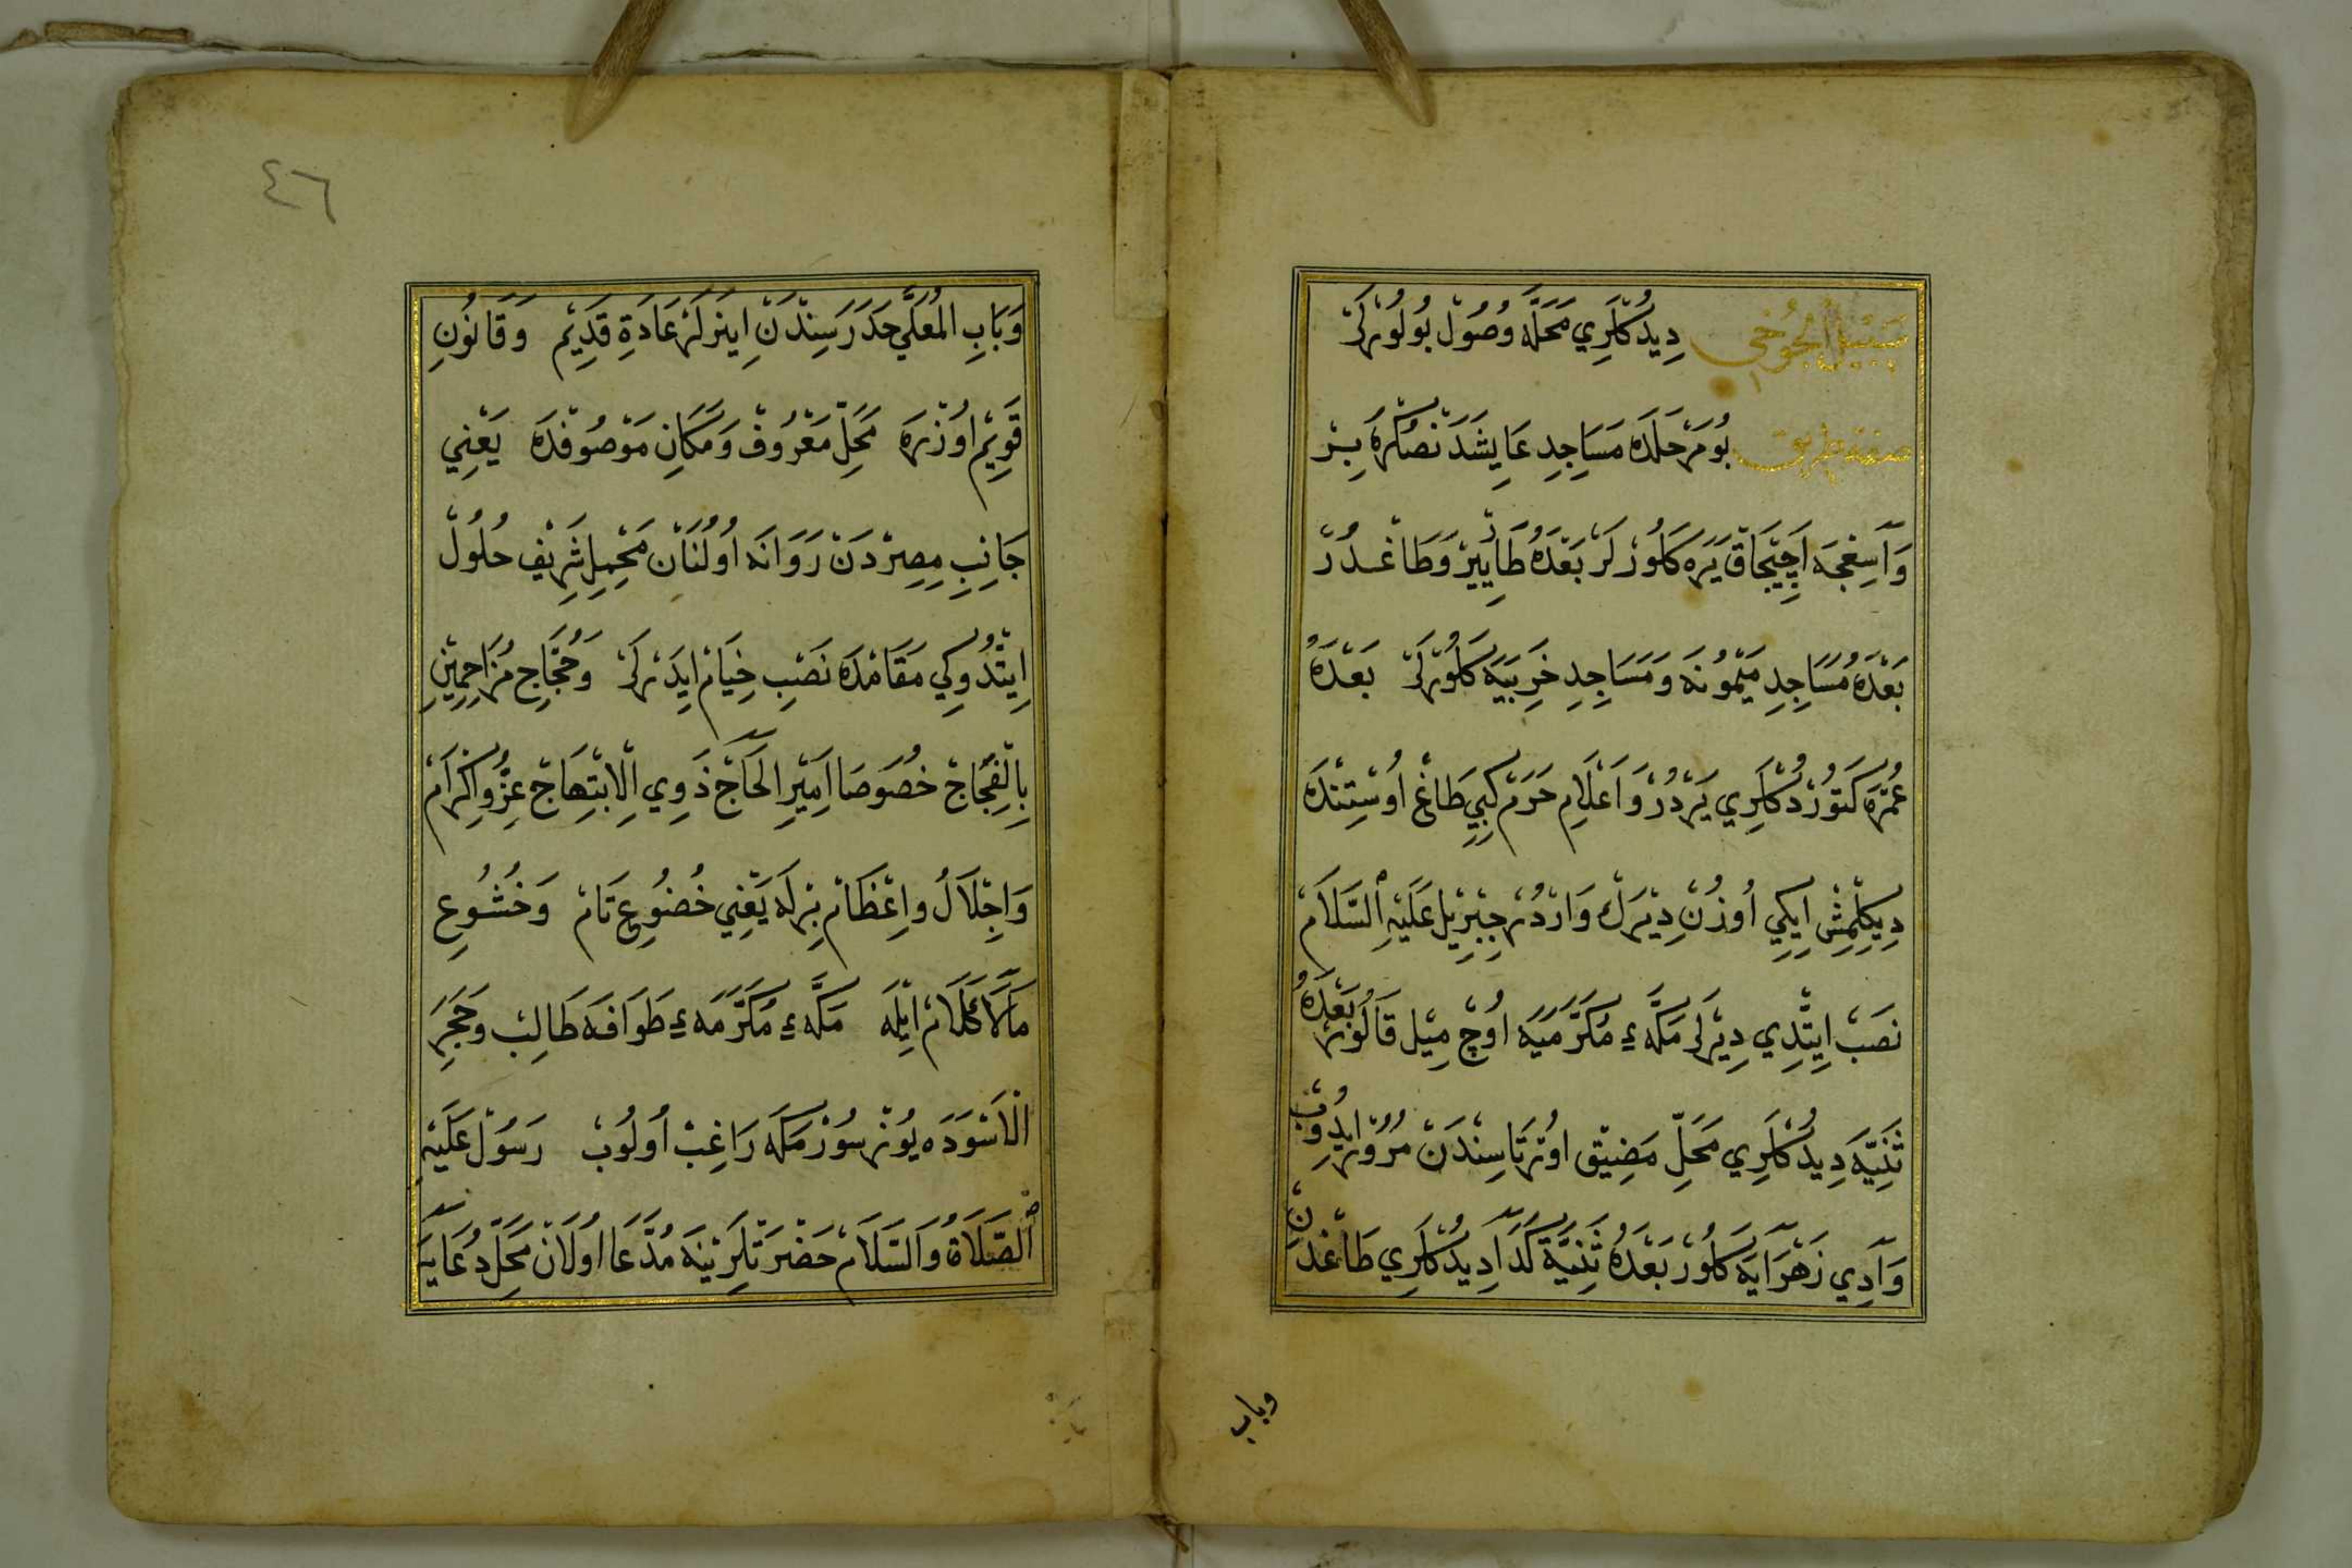 سَبِيلُ الْجُوخِي دِيدُكْلَرِي مَحَلَّه وُصُولْ بُولُورْلَرْ
صفة طريق بُومَرْحَلَدَه مَسَاجِدِ عَايِشَدَنْصُكْرَه بِرْ
وَآسِعْجَه اَچِيجَاقْ يَرَه كَلُورْلَرْ بَعْدَهُ طَايِّيرْ وَطَاغْلَدُرْ
بَعْدَهُ مَسَاجِدِ مَيْمُونَه وَمَسَاجِدِ خَرِبَيَه كَلُورْلَرْ بَعْدَهُ
عُمْرَه كَتُورْدُكْلَرِي يَرْدُرْ وَاَعْلَامِ حَرَمْ كِبِي طَاغْ اُوسْتِنْدَه
دِيكِلْمِشْ اِيكِي اُوزُنْ دِيرَكْ وَارْدُرْ جِبْرِيلْ عَلَيْهِ اَلسَّلَامْ
نَصَبْ اِيتَّدِي دِيرْلَرْ مَكَّهءِ مُكَرَّمَيَه اُوچْ مِيلْ قَالُورْ بَعْدَهُ
ثَنِيَّه دِيدُكْلَرِي مَحَلِّ مَضِيقْ اُورْتَاسِنْدَنْ مُرُورْ اِيدُوبْ
وَآدِي زَهْرَآيَه كَلُورْ بَعْدَهُ ثَنِيَّةِ كَدَآ دِيدُكْلَرِي طَاغْدَنِ
وباب
٤٦
وَبَابِ الْمُعَلَّي حَدَرَسِنْدَنِ اِينَرْلَرْ عَادَةِ قَدِيمْ وَقَانُونِ
قَوِيمْ اُوزْرَه مَحَلِّ مَعْرُوفْ وَمَكَانِ مَوْصُوفْدَه يَعْنِي
جَانِبِ مِصِرْدَنْ رَوَانَه اُولُنَانْ مَحْمِلِ شَرِيفْ حُلُولْ
اِيتْدُوكِي مَقَامْدَه نَصْبِ خِيَامْ اِيدَرْلَرْ وَحُجَّاجِ مُزَاحِمِينِ
بِالْفِجَاجْ خُصُوصَا اَمِيرِ الْحَاجْ ذَوِي الْاِبْتِهَاجْ عِزُّ وَاِكْرَامْ
وَاِجْلَالْ وَاِعْظَامْ بِرْلَه يَعْنِي خُضُوعِ تَامْ وَخُشُوعِ
مَالَاكَلَامْ اِيْلَه مَكَّهءِ مُكَرَّمَهءِ طَوَافَه طَالِبْ وَحَجَرِ
الْاَسْوَدَه يُوزْ سُورْمَكَه رَاغِبْ اُولُوبْ رَسُولْ عَلَيْهِ
اَلصَّلَاةُ وَالسَّلَامْ حَضْرَتْلَرِيْنَه مُدَّعَا اُولَانْ مَحَلِّ دُعَايَه